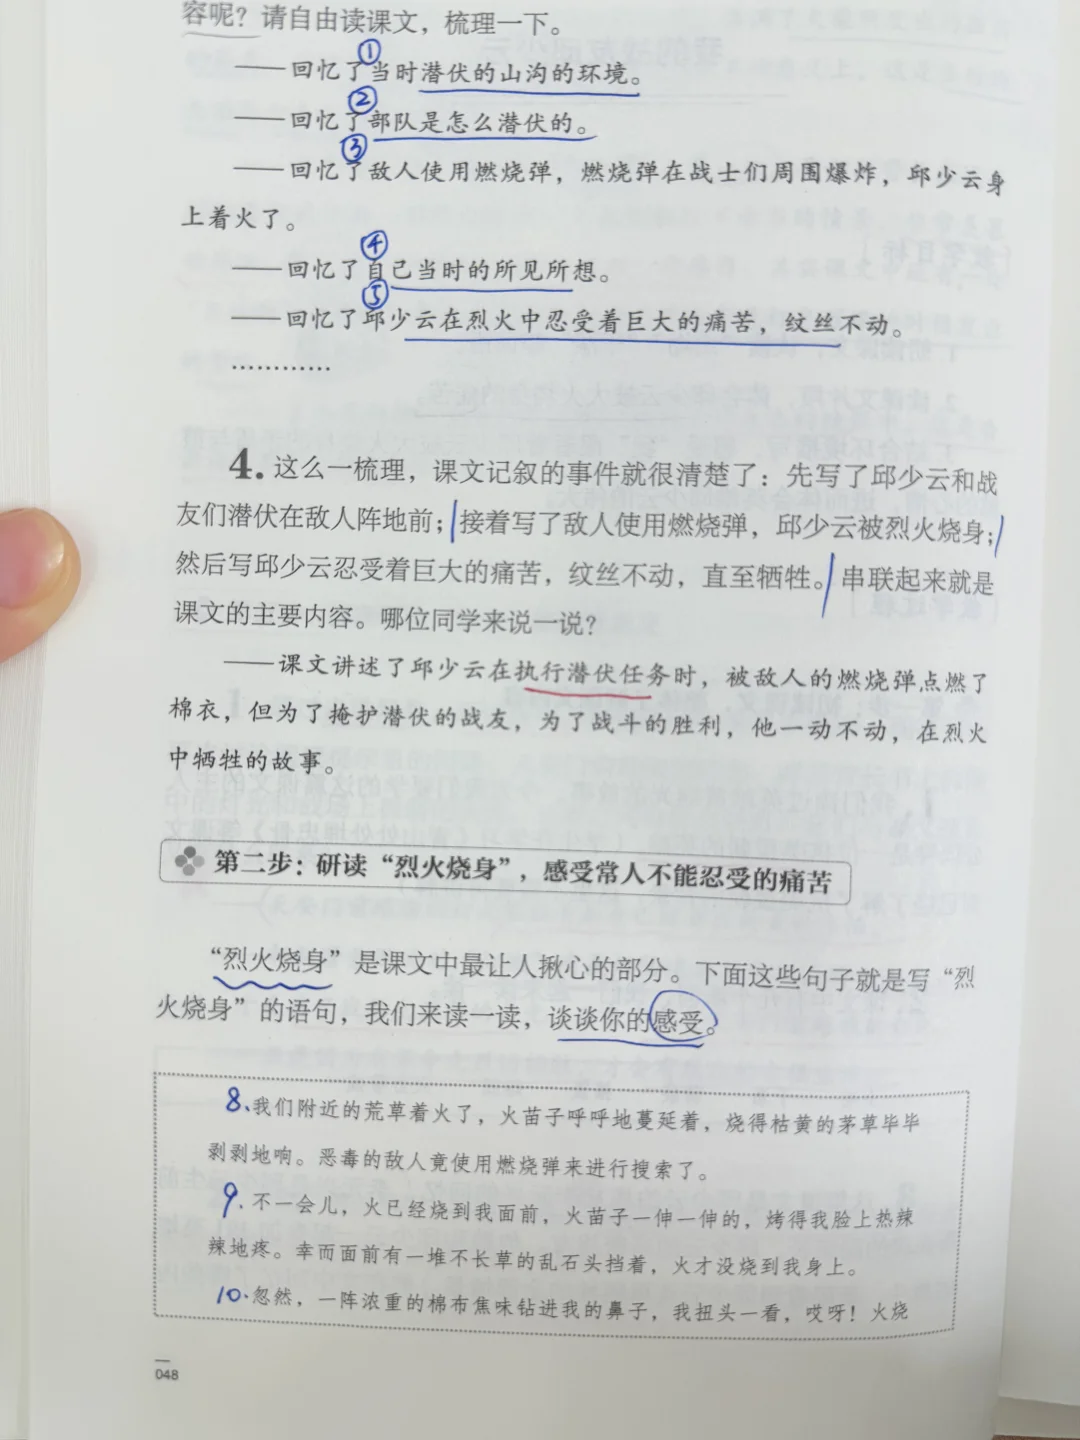 容呢？请自由读课文，梳理一下。
①
——回忆了当时潜伏的山沟的环境。
②
——回忆了部队是怎么潜伏的。
③
——回忆了敌人使用燃烧弹，燃烧弹在战士们周围爆炸，邱少云身
上着火了。
④
——回忆了自己当时的所见所想。
⑤
——回忆了邱少云在烈火中忍受着巨大的痛苦，纹丝不动。
…………
4. 这么一梳理，课文记叙的事件就很清楚了：先写了邱少云和战
友们潜伏在敌人阵地前；接着写了敌人使用燃烧弹，邱少云被烈火烧身；
然后写邱少云忍受着巨大的痛苦，纹丝不动，直至牺牲。串联起来就是
课文的主要内容。哪位同学来说一说？
——课文讲述了邱少云在执行潜伏任务时，被敌人的燃烧弹点燃了
棉衣，但为了掩护潜伏的战友，为了战斗的胜利，他一动不动，在烈火
中牺牲的故事。
第二步：研读“烈火烧身”，感受常人不能忍受的痛苦
“烈火烧身”是课文中最让人揪心的部分。下面这些句子就是写“烈
火烧身”的语句，我们来读一读，谈谈你的感受。
8、我们附近的荒草着火了，火苗子呼呼地蔓延着，烧得枯黄的茅草毕毕
剥剥地响。恶毒的敌人竟使用燃烧弹来进行搜索了。
9、不一会儿，火已经烧到我面前，火苗子一伸一伸的，烤得我脸上热辣
辣地疼。幸而面前有一堆不长草的乱石头挡着，火才没烧到我身上。
10、忽然，一阵浓重的棉布焦味钻进我的鼻子，我扭头一看，哎呀！火烧
048